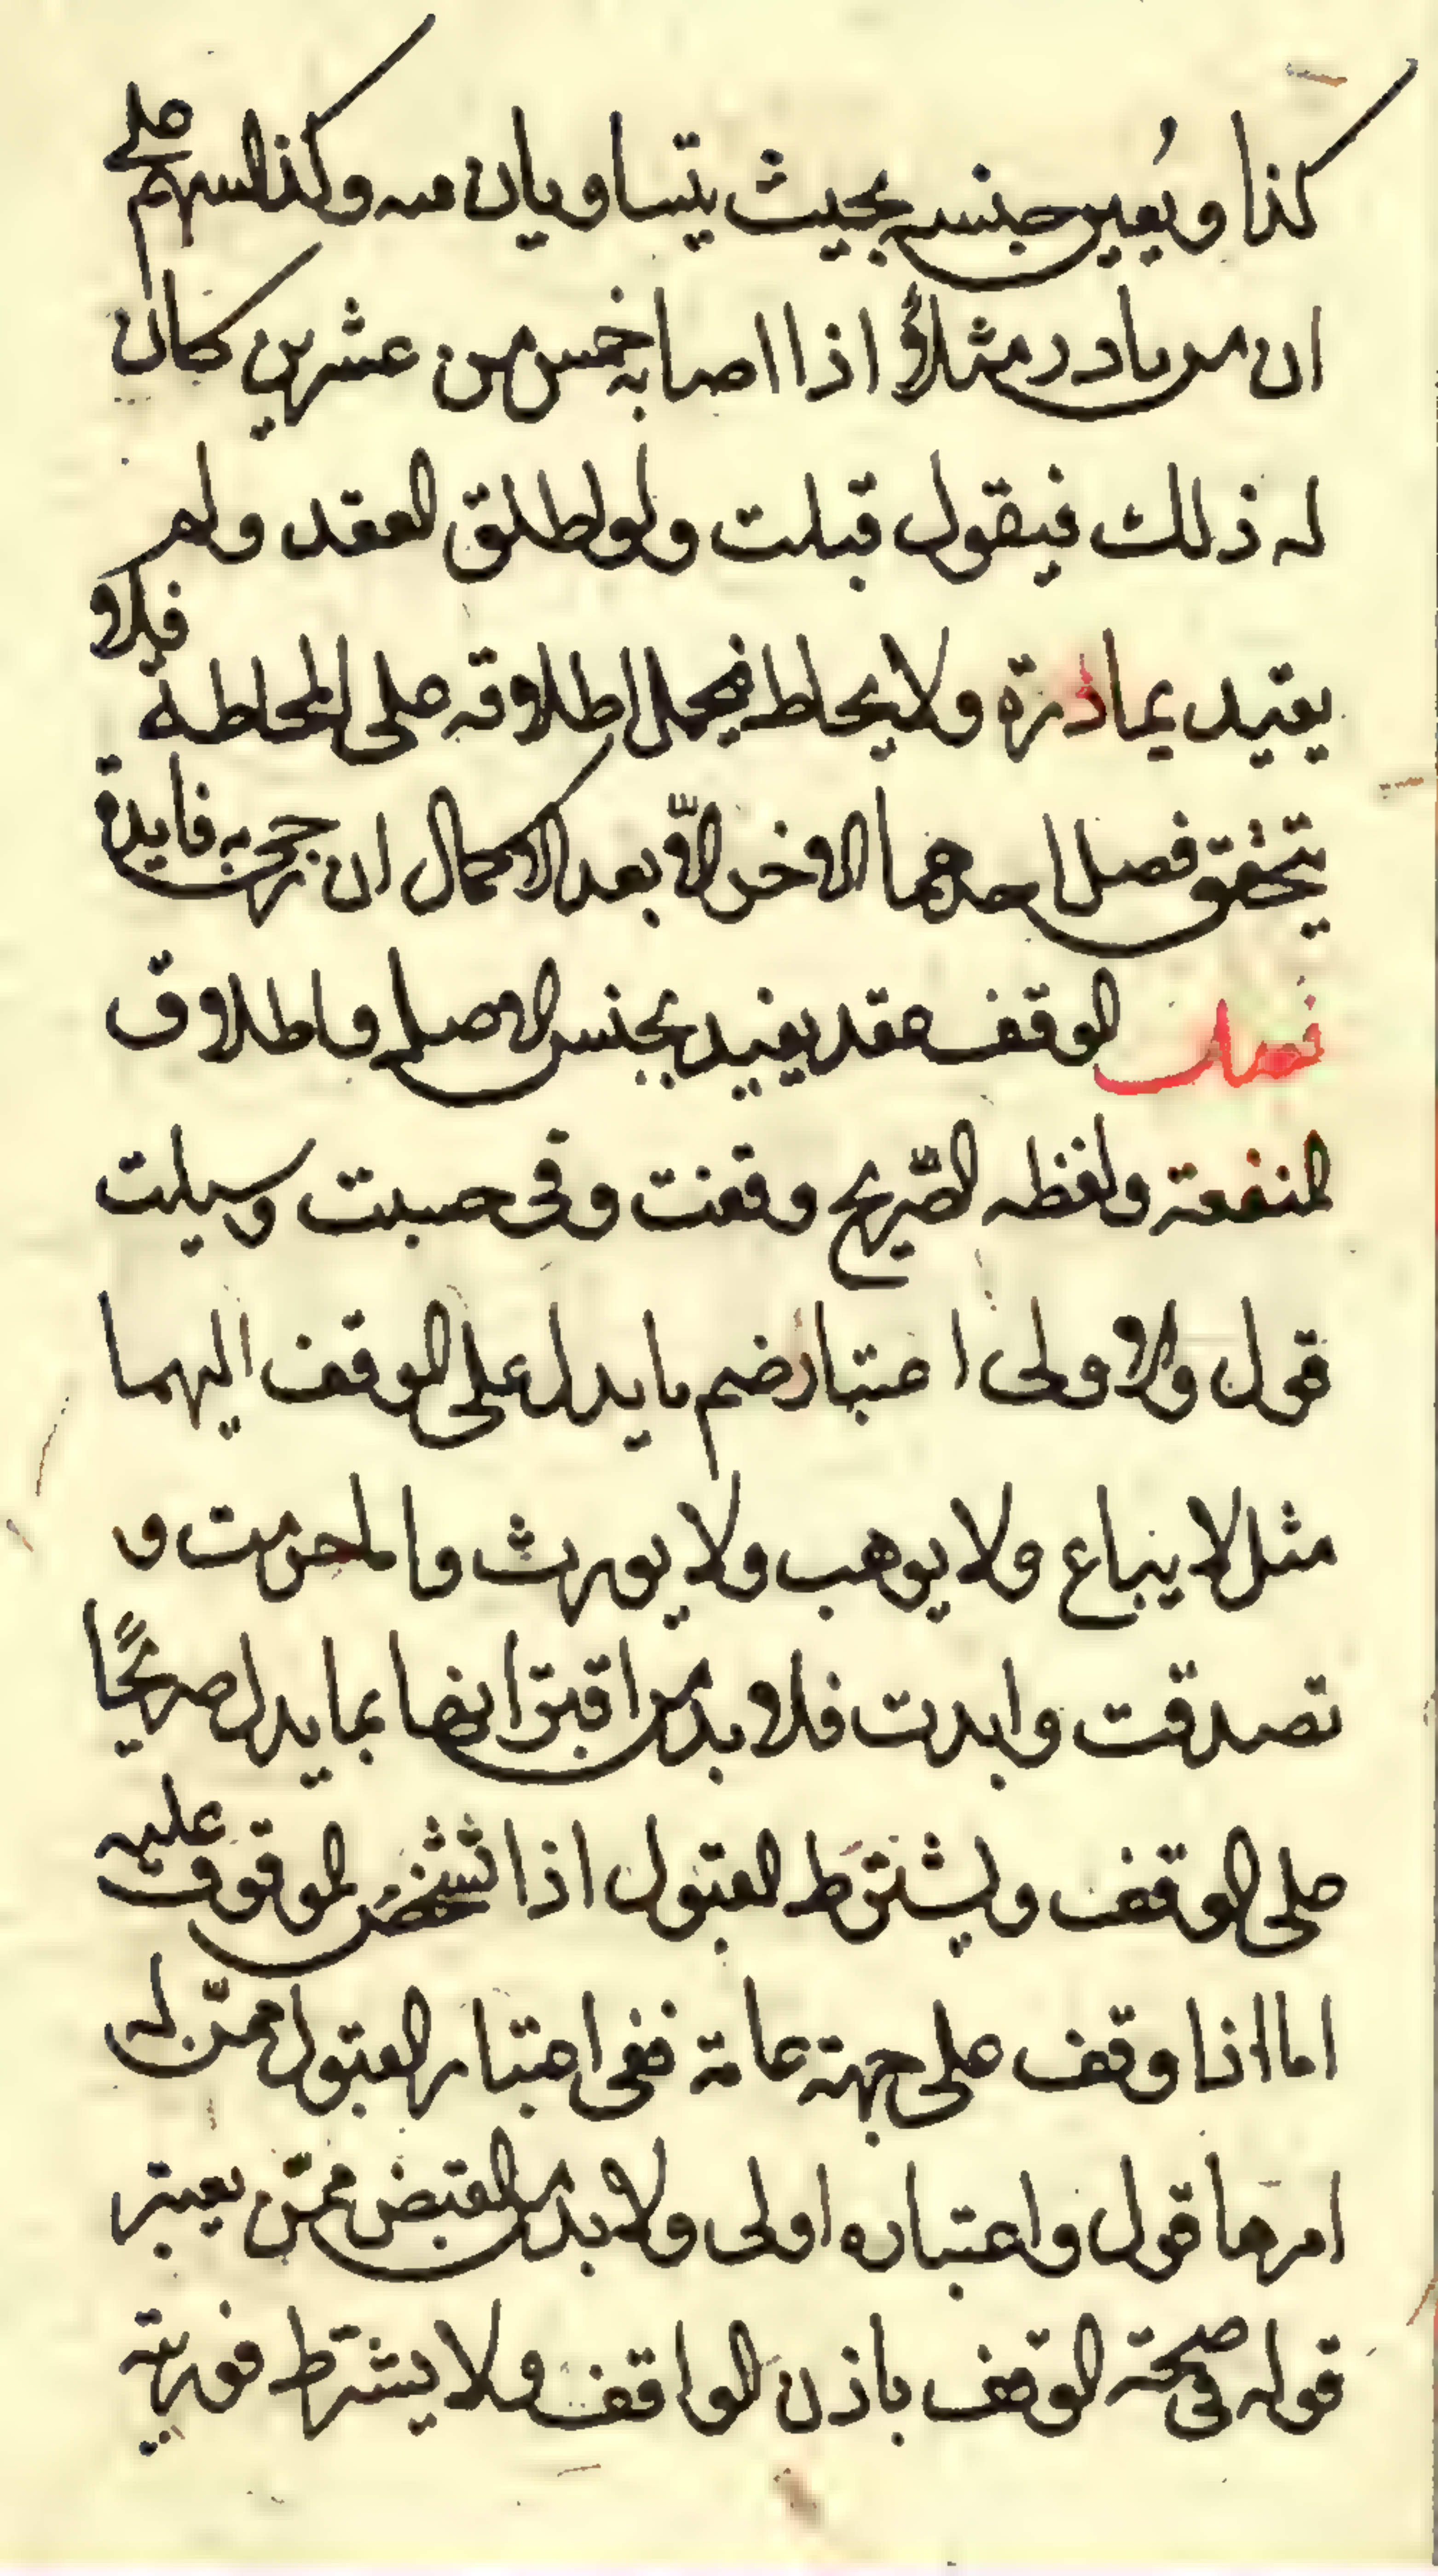 كذا ويُعين جنسه بحيث يتساويان فيه وكذا السهم على
ان من بادر مثلاً اذا اصابه خمس من عشرين كان
له ذلك فيقول قبلت ولو اطلق العقد ولم
يقيد بمادرة ولا بحاط فيحمل اطلاقه على المحاطة فلا
يتحقق فصل احدهما الاخر الّا بعد الاكمال ان نجزت به فايدة
فصل الوقف عقد يفيد بجنس الاصل واطلاق
المنفعة ولفظه الصّريح وقفت وفى حسبت وسبلت
قول والاولى اعتبار ضم ما يدل على الوقف اليهما
مثل لا يباع ولا يوهب ولا يورث واما حرمت و
تصدقت وابدت فلا بد من اقترانها بما يدل صريحًا
على الوقف ويشترط القبول اذا تشخص الموقوف عليه
اما اذا وقف على جهة عامة ففى اعتبار القبول ممّن له
امرها قول واعتباره اولى ولا بد من القبض ممّن يعتبر
قوله فى صحة الوقف باذن الواقف ولا يشترط فوريته